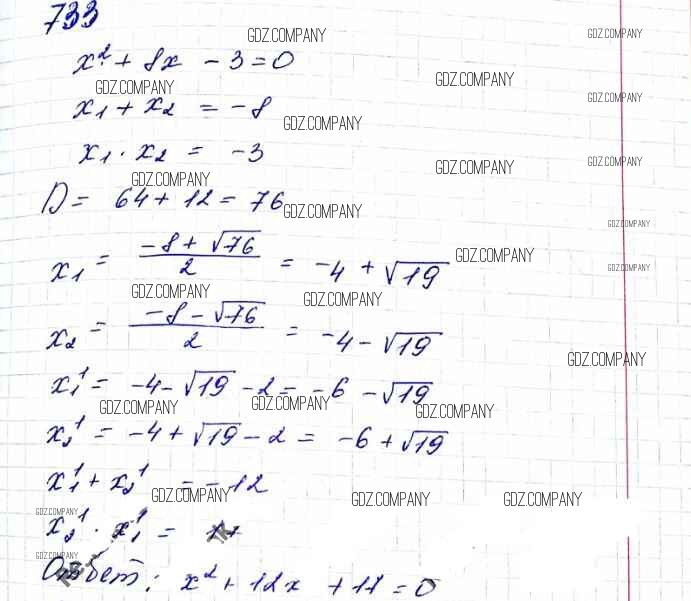 733
GDZ.COMPANY GDZ.COMPANY
x² + 8x - 3 = 0
GDZ.COMPANY GDZ.COMPANY
GDZ.COMPANY
x₁ + x₂ = -8
GDZ.COMPANY
x₁ · x₂ = -3
GDZ.COMPANY GDZ.COMPANY
GDZ.COMPANY
D = 64 + 12 = 76
GDZ.COMPANY
GDZ.COMPANY
x₁ = (-8 + √76)/2 = -4 + √19
GDZ.COMPANY GDZ.COMPANY
GDZ.COMPANY GDZ.COMPANY
x₂ = (-8 - √76)/2 = -4 - √19
GDZ.COMPANY
x₁¹ = -4 - √19 - 2 = -6 - √19
GDZ.COMPANY GDZ.COMPANY GDZ.COMPANY
x₂¹ = -4 + √19 - 2 = -6 + √19
x₁¹ + x₂¹ = -12
GDZ.COMPANY GDZ.COMPANY GDZ.COMPANY
GDZ.COMPANY
x₂¹ · x₁¹ =
GDZ.COMPANY
Ответ: x² + 12x + 17 = 0